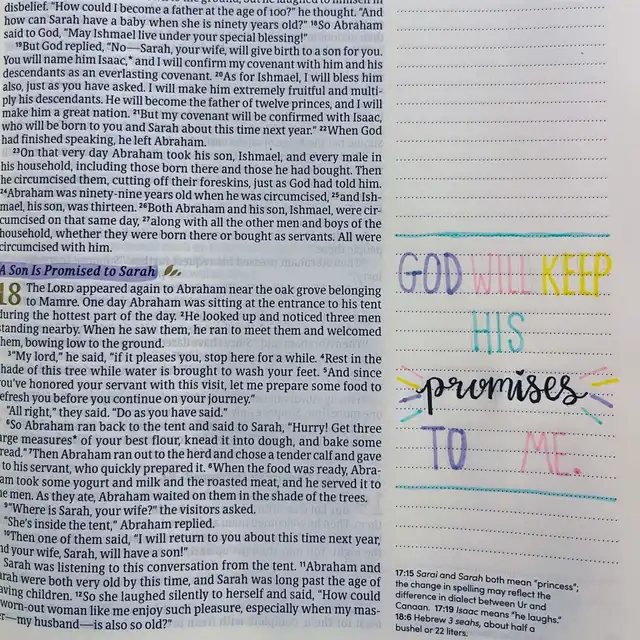 disbelief. "How could I become a father at the age of 100?" he thought. "And
how can Sarah have a baby when she is ninety years old?" 18So Abraham
said to God, "May Ishmael live under your special blessing!"
19But God replied, "No—Sarah, your wife, will give birth to a son for you.
You will name him Isaac,* and I will confirm my covenant with him and his
descendants as an everlasting covenant. 20As for Ishmael, I will bless him
also, just as you have asked. I will make him extremely fruitful and multi-
ply his descendants. He will become the father of twelve princes, and I will
make him a great nation. 21But my covenant will be confirmed with Isaac,
who will be born to you and Sarah about this time next year." 22When God
had finished speaking, he left Abraham.
23On that very day Abraham took his son, Ishmael, and every male in
his household, including those born there and those he had bought. Then
he circumcised them, cutting off their foreskins, just as God had told him.
24Abraham was ninety-nine years old when he was circumcised, 25and Ish-
mael, his son, was thirteen. 26Both Abraham and his son, Ishmael, were cir-
cumcised on that same day, 27along with all the other men and boys of the
household, whether they were born there or bought as servants. All were
circumcised with him.
A Son Is Promised to Sarah
18 The LORD appeared again to Abraham near the oak grove belonging
to Mamre. One day Abraham was sitting at the entrance to his tent
during the hottest part of the day. 2He looked up and noticed three men
standing nearby. When he saw them, he ran to meet them and welcomed
them, bowing low to the ground.
3"My lord," he said, "if it pleases you, stop here for a while. 4Rest in the
hade of this tree while water is brought to wash your feet. 5And since
ou've honored your servant with this visit, let me prepare some food to
efresh you before you continue on your journey."
"All right," they said. "Do as you have said."
6So Abraham ran back to the tent and said to Sarah, "Hurry! Get three
arge measures* of your best flour, knead it into dough, and bake some
read." 7Then Abraham ran out to the herd and chose a tender calf and gave
to his servant, who quickly prepared it. 8When the food was ready, Abra-
am took some yogurt and milk and the roasted meat, and he served it to
e men. As they ate, Abraham waited on them in the shade of the trees.
9"Where is Sarah, your wife?" the visitors asked.
"She's inside the tent," Abraham replied.
10Then one of them said, "I will return to you about this time next year,
nd your wife, Sarah, will have a son!"
Sarah was listening to this conversation from the tent. 11Abraham and
arah were both very old by this time, and Sarah was long past the age of
aving children. 12So she laughed silently to herself and said, "How could
worn-out woman like me enjoy such pleasure, especially when my mas-
er—my husband—is also so old?"
GOD WILL KEEP
HIS
promises
TO ME.
17:15 Sarai and Sarah both mean "princess";
the change in spelling may reflect the
difference in dialect between Ur and
Canaan. 17:19 Isaac means "he laughs."
18:6 Hebrew 3 seahs, about half a
bushel or 22 liters.